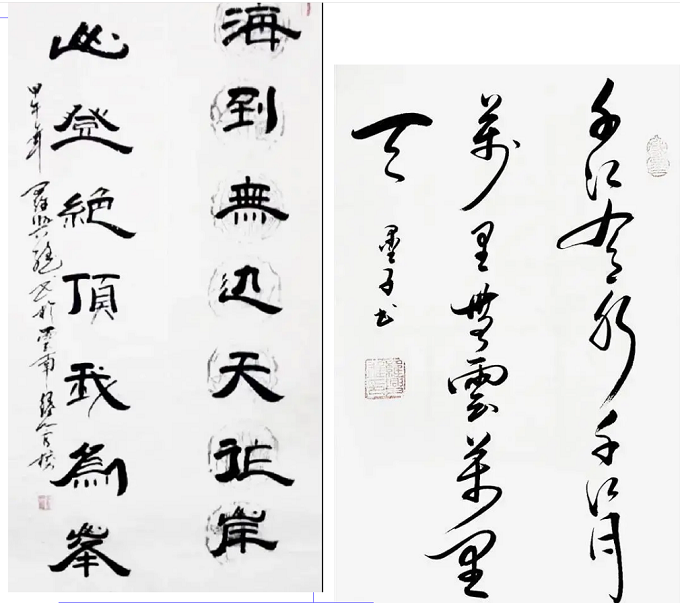 海到無边天作岸
山登絶頂我為峯
甲午年
千江有水千江月
萬里無雲萬里
天
墨子书